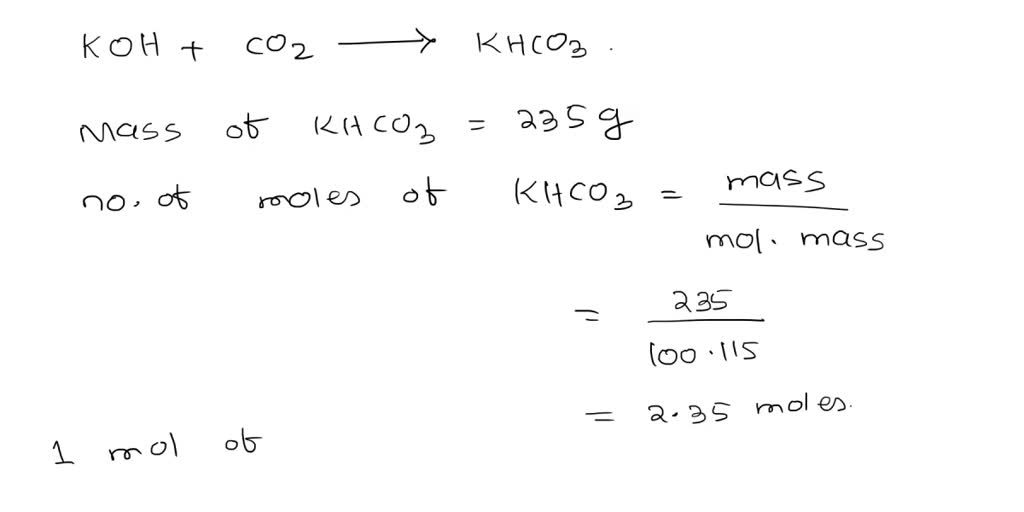 KOH + CO2 ⟶ KHCO3.
Mass of KHCO3 = 235 g
no. of moles of KHCO3 = mass / mol. mass
= 235 / 100.115
= 2.35 moles.
1 mol of